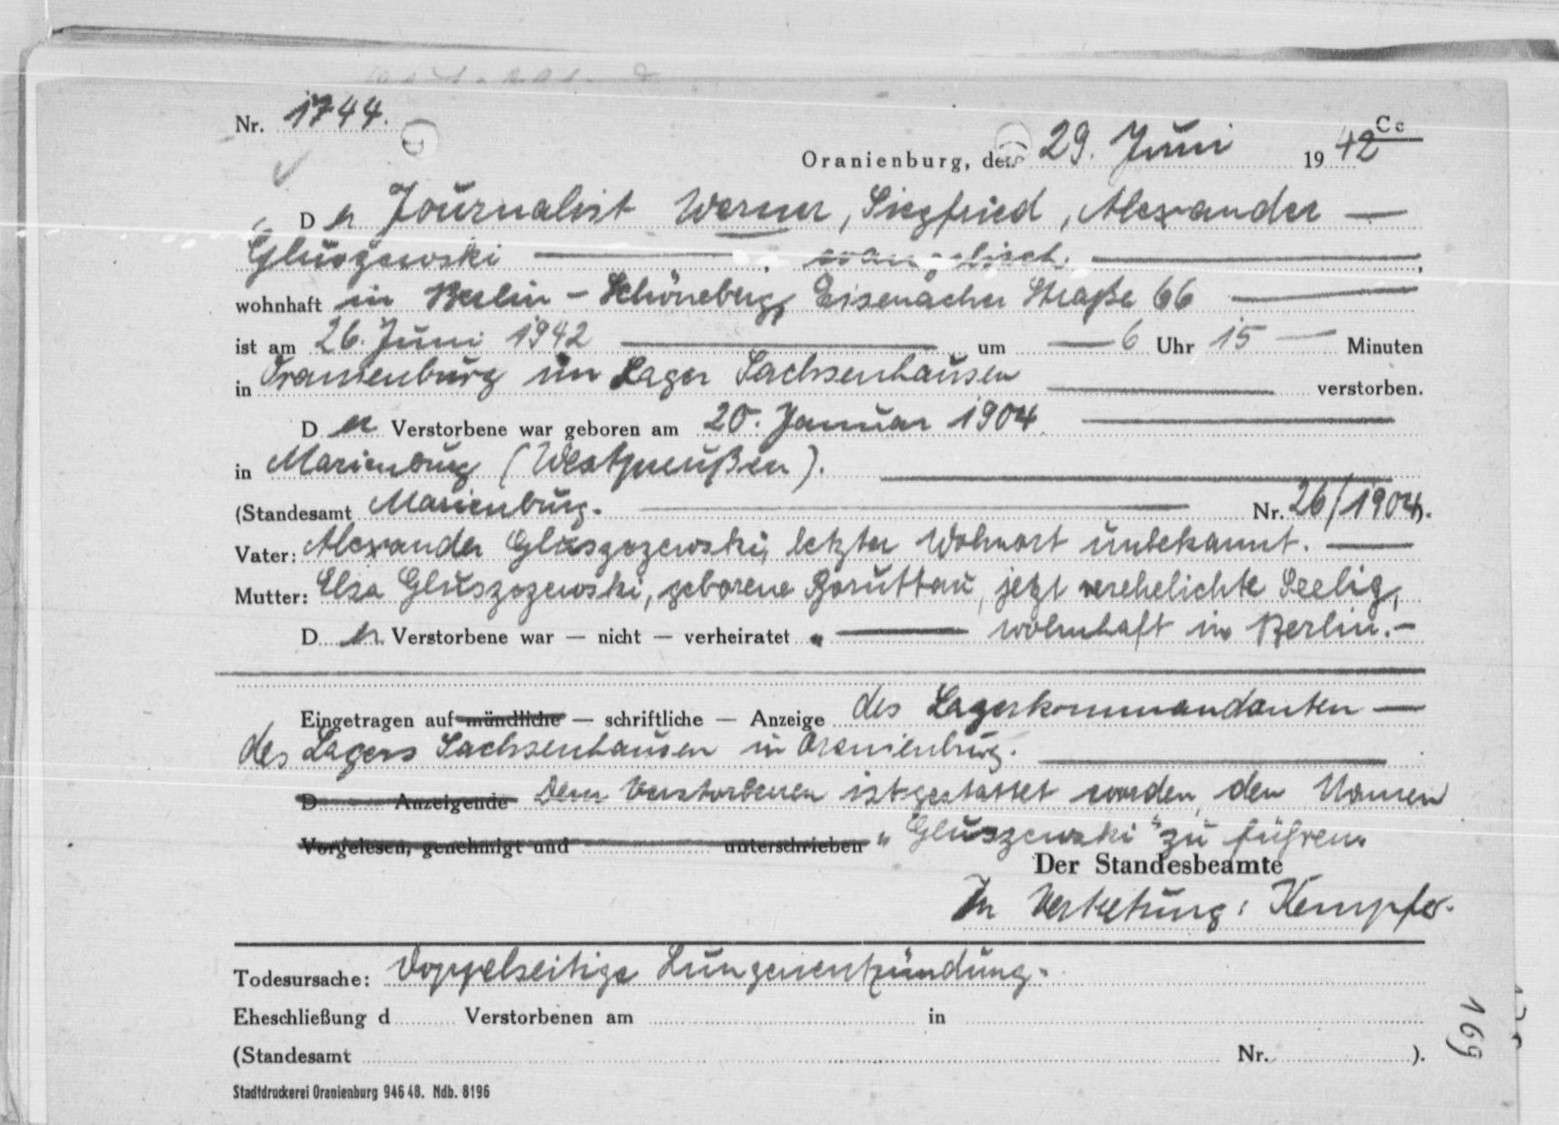 Nr. 1744.
Cc
Oranienburg, den 29. Juni 1942
Der Journalist Werner, Siegfried, Alexander —
Gluszewski —, evangelisch, —,
wohnhaft in Berlin - Schöneberg, Eisenacher Straße 66 —
ist am 26. Juni 1942 — um — 6 Uhr 15 — Minuten
in Oranienburg im Lager Sachsenhausen — verstorben.
Der Verstorbene war geboren am 20. Januar 1904. —
in Marienburg (Westpreußen). —
(Standesamt Marienburg. — Nr. 26/1904).
Vater: Alexander Gluszczewski, letzter Wohnort unbekannt. —
Mutter: Elsa Gluszczewski, geborene Boruttau, jetzt verehelichte Seelig,
Der Verstorbene war — nicht — verheiratet. — wohnhaft in Berlin. —
Eingetragen auf mündliche — schriftliche — Anzeige des Lagerkommandanten —
des Lagers Sachsenhausen in Oranienburg. —
D Anzeigende Dem Verstorbenen ist gestattet worden, den Namen
Vorgelesen, genehmigt und unterschrieben "Gluszewski" zu führen.
Der Standesbeamte
In Vertretung: Kempfer.
Todesursache: Doppelseitige Lungenentzündung.
Eheschließung d Verstorbenen am in
(Standesamt Nr. ).
Stadtdruckerei Oranienburg 946 48. Ndb. 8196
169